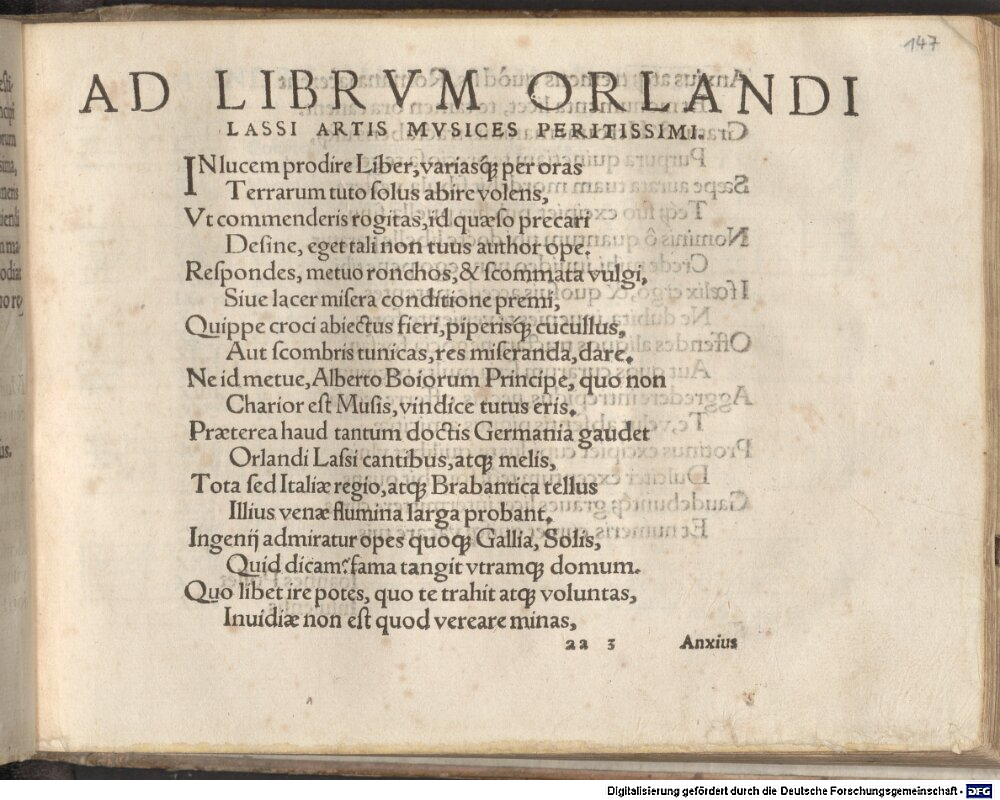 147
AD LIBRVM ORLANDI
LASSI ARTIS MVSICES PERITISSIMI.
INlucem prodire Liber, variasq́; per oras
Terrarum tuto solus abire volens,
Vt commenderis rogitas, id quæso precari
Desine, eget tali non tuus author ope.
Respondes, metuo ronchos, & scommata vulgi,
Siue lacer misera conditione premi,
Quippe croci abiectus fieri, piperisq́; cucullus,
Aut scombris tunicas, res miseranda, dare.
Ne id metue, Alberto Boiorum Principe, quo non
Charior est Musis, vindice tutus eris.
Præterea haud tantum doctis Germania gaudet
Orlandi Lassi cantibus, atq; melis,
Tota sed Italiæ regio, atq; Brabantica tellus
Illius venæ flumina larga probant.
Ingenij admiratur opes quoq; Gallia, Solis,
Quid dicam? fama tangit vtramq; domum.
Quo libet ire potes, quo te trahit atq; voluntas,
Inuidiæ non est quod vereare minas,
aa 3 Anxius
Digitalisierung gefördert durch die Deutsche Forschungsgemeinschaft - DFG